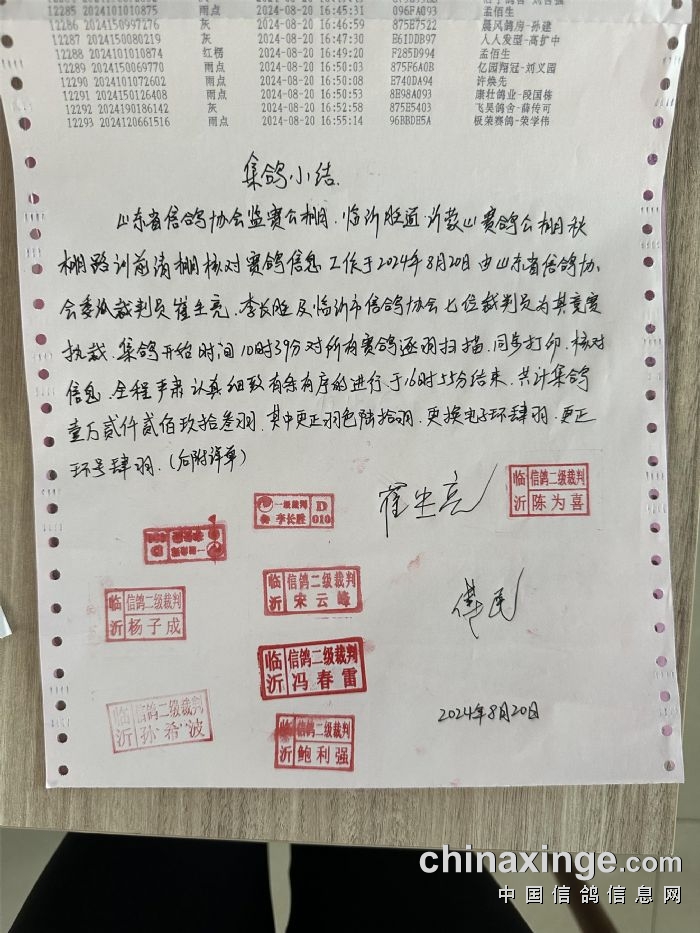 12285 2024101010875 雨点 2024-08-20 16:45:31 096FA093 孟佰生
12286 2024150997276 灰 2024-08-20 16:46:59 875E7522 晨风鸽房-孙建
12287 2024150080219 灰 2024-08-20 16:47:30 E61DDB97 人人发型-高扩中
12288 2024101010874 红楞 2024-08-20 16:49:20 F285D994 孟佰生
12289 2024150069770 雨点 2024-08-20 16:50:03 875F6A0B 亿园翔冠-刘义园
12290 2024101072602 雨点 2024-08-20 16:50:08 E740DA94 许焕先
12291 2024150126408 雨点 2024-08-20 16:50:53 8E98A093 康壮鸽业-段国栋
12292 2024190186142 灰 2024-08-20 16:52:58 875E5403 飞昊鸽舍-薛传可
12293 2024120661516 雨点 2024-08-20 16:55:14 96BBDE5A 极荣赛鸽-荣学伟
集鸽小结
山东省信鸽协会监赛公棚.临沂胜通沂蒙山赛鸽公棚秋
棚路训前清棚核对赛鸽信息工作于2024年8月20日由山东省信鸽协
会委派裁判员崔生亮.李长胜及临沂市信鸽协会七位裁判员为其竞赛
执裁.集鸽开始时间10时39分对所有赛鸽逐羽扫描.同步打印.核对
信息.全程严肃认真细致有条有序的进行.于16时55分结束.共计集鸽
壹万贰仟贰佰玖拾叁羽.其中更正羽色陆拾羽.更换电子环肆羽.更正
环号肆羽.(后附详单)
崔生亮
临沂 信鸽二级裁判 陈为喜
一级裁判 李长胜 D 010
临沂 信鸽二级裁判 杨子成
临沂 信鸽二级裁判 宋云峰
临沂 信鸽二级裁判 冯春雷
临沂 信鸽二级裁判 孙希波
临沂 信鸽二级裁判 鲍利强
2024年8月20日
chinaxinge.com
中国信鸽信息网